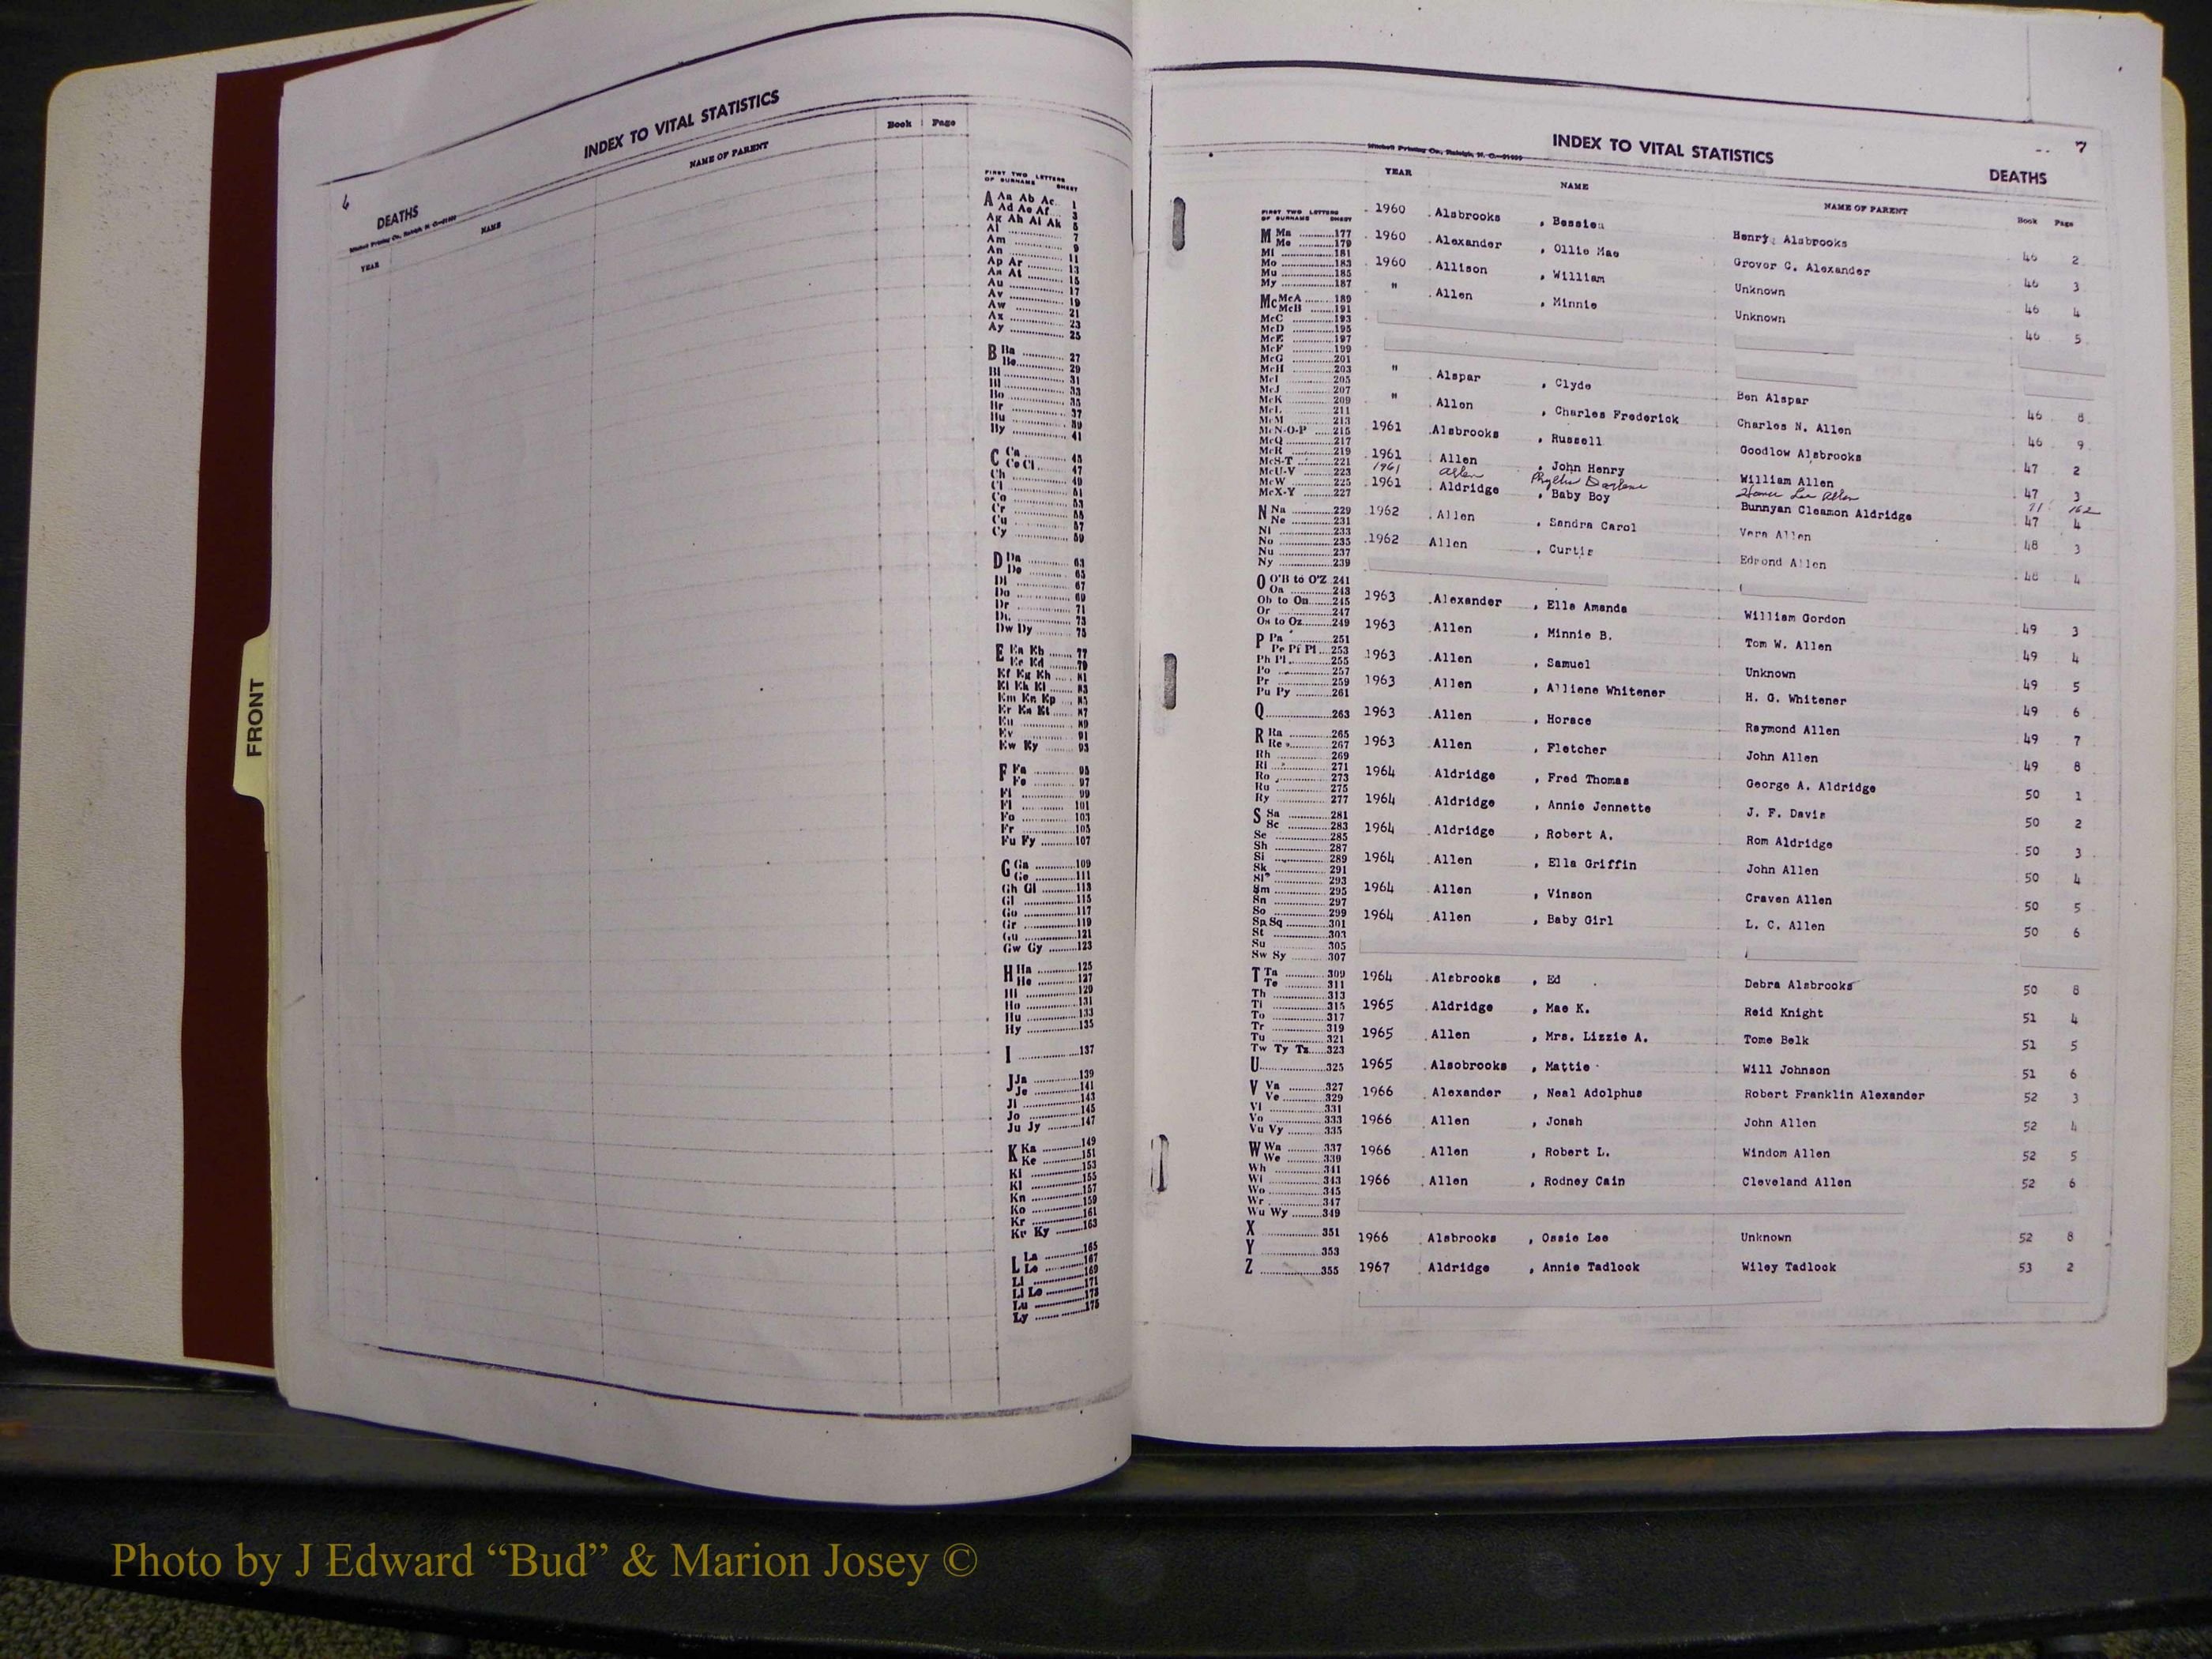 FRONT
6
INDEX TO VITAL STATISTICS
DEATHS
YEAR NAME NAME OF PARENT Book Page
FIRST TWO LETTERS
OF SURNAME SHEET
A Aa Ab Ac 1
Ad Ae Af 3
Ag Ah Ai Ak 5
Al 7
Am 9
An 11
Ap Ar 13
As At 15
Au 17
Av 19
Aw 21
Ax 23
Ay 25
B Ba 27
Be 29
Bi 31
Bl 33
Bo 35
Br 37
Bu 39
By 41
C Ca 45
Ce Ci 47
Ch 49
Cl 51
Co 53
Cr 55
Cu 57
Cy 59
D Da 63
De 65
Di 67
Do 69
Dr 71
Du 73
Dw Dy 75
E Ea Eb 77
Ec Ed 79
Ef Eg Eh 81
Ei Ek El 83
Em En Ep 85
Er Es Et 87
Eu 89
Ev 91
Ew Ey 93
F Fa 95
Fe 97
Fi 99
Fl 101
Fo 103
Fr 105
Fu Fy 107
G Ga 109
Ge 111
Gh Gi 113
Gl 115
Go 117
Gr 119
Gu 121
Gw Gy 123
H Ha 125
He 127
Hi 129
Ho 131
Hu 133
Hy 135
I 137
J Ja 139
Je 141
Ji 143
Jo 145
Ju Jy 147
K Ka 149
Ke 151
Ki 153
Kl 155
Kn 157
Ko 159
Kr 161
Kr Ky 163
L La 165
Le 167
Li 169
Ll Lo 173
Lu
Ly 175
7
INDEX TO VITAL STATISTICS
Mitchell Printing Co., Raleigh, N. C.
DEATHS
YEAR NAME NAME OF PARENT Book Page
FIRST TWO LETTERS
OF SURNAME SHEET
M Ma 177
Me 179
Mi 181
Mo 183
Mu 185
My 187
Mc McA 189
McB 191
McC 193
McD 195
McE 197
McF 199
McG 201
McH 203
McI 205
McJ 207
McK 209
McL 211
McM 213
McN-O-P 215
McQ 217
McR 219
McS-T 221
McU-V 223
McW 225
McX-Y 227
N Na 229
Ne 231
Ni 233
No 235
Nu 237
Ny 239
O O'B to O'Z 241
Oa 243
Ob to On 245
Or 247
Os to Oz 249
P Pa 251
Pe Pf Pi 253
Ph Pl 255
Po 257
Pr 259
Pu Py 261
Q 263
R Ra 265
Re 267
Rh 269
Ri 271
Ro 273
Ru 275
Ry 277
S Sa 281
Sc 283
Se 285
Sh 287
Si 289
Sk 291
Sl 293
Sm 295
Sn 297
So 299
Sp Sq 301
St 303
Su 305
Sw Sy 307
T Ta 309
Te 311
Th 313
Ti 315
To 317
Tr 319
Tu 321
Tw Ty Tz 323
U 325
V Va 327
Ve 329
Vi 331
Vo 333
Vu Vy 335
W Wa 337
We 339
Wh 341
Wi 343
Wo 345
Wr 347
Wu Wy 349
X 351
Y 353
Z 355
1960 Alsbrooks , Bessie Henry Alsbrooks 46 2
1960 Alexander , Ollie Mae Grover C. Alexander 46 3
1960 Allison , William Unknown 46 4
" Allen , Minnie Unknown 46 5
" Alspar , Clyde Ben Alspar 46 8
" Allen , Charles Frederick Charles N. Allen 46 9
1961 Alsbrooks , Russell Goodlow Alsbrooks 47 2
1961 Allen , John Henry William Allen 47 3
1961 Allen Phyllis Darlene Lee Allen 162
1961 Aldridge , Baby Boy Bunnyan Cleamon Aldridge 47 4
1962 Allen , Sandra Carol Vern Allen 48 3
1962 Allen , Curtis Edmond Allen 48 4
1963 Alexander , Ella Amanda William Gordon 49 3
1963 Allen , Minnie B. Tom W. Allen 49 4
1963 Allen , Samuel Unknown 49 5
1963 Allen , Alliene Whitener H. G. Whitener 49 6
1963 Allen , Horace Raymond Allen 49 7
1963 Allen , Fletcher John Allen 49 8
1964 Aldridge , Fred Thomas George A. Aldridge 50 1
1964 Aldridge , Annie Jennette J. F. Davis 50 2
1964 Aldridge , Robert A. Rom Aldridge 50 3
1964 Allen , Ella Griffin John Allen 50 4
1964 Allen , Vinson Craven Allen 50 5
1964 Allen , Baby Girl L. C. Allen 50 6
1964 Alsbrooks , Ed Debra Alsbrooks 50 8
1965 Aldridge , Mae K. Reid Knight 51 4
1965 Allen , Mrs. Lizzie A. Tome Belk 51 5
1965 Alsobrooks , Mattie Will Johnson 51 6
1966 Alexander , Neal Adolphus Robert Franklin Alexander 52 3
1966 Allen , Jonah John Allen 52 4
1966 Allen , Robert L. Windom Allen 52 5
1966 Allen , Rodney Cain Cleveland Allen 52 6
1966 Alsbrooks , Ossie Lee Unknown 52 8
1967 Aldridge , Annie Tadlock Wiley Tadlock 53 2
Photo by J Edward “Bud” & Marion Josey ©